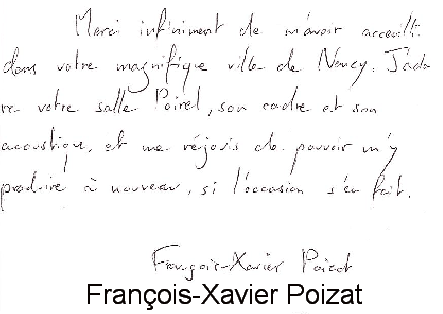 Merci infiniment de m'avoir accueilli
dans votre magnifique ville de Nancy. J'ado
re votre salle Poirel, son cadre et son
acoustique, et me réjouis de pouvoir m'y
produire à nouveau, si l'occasion s'en fait.
François-Xavier Poizat
François-Xavier Poizat